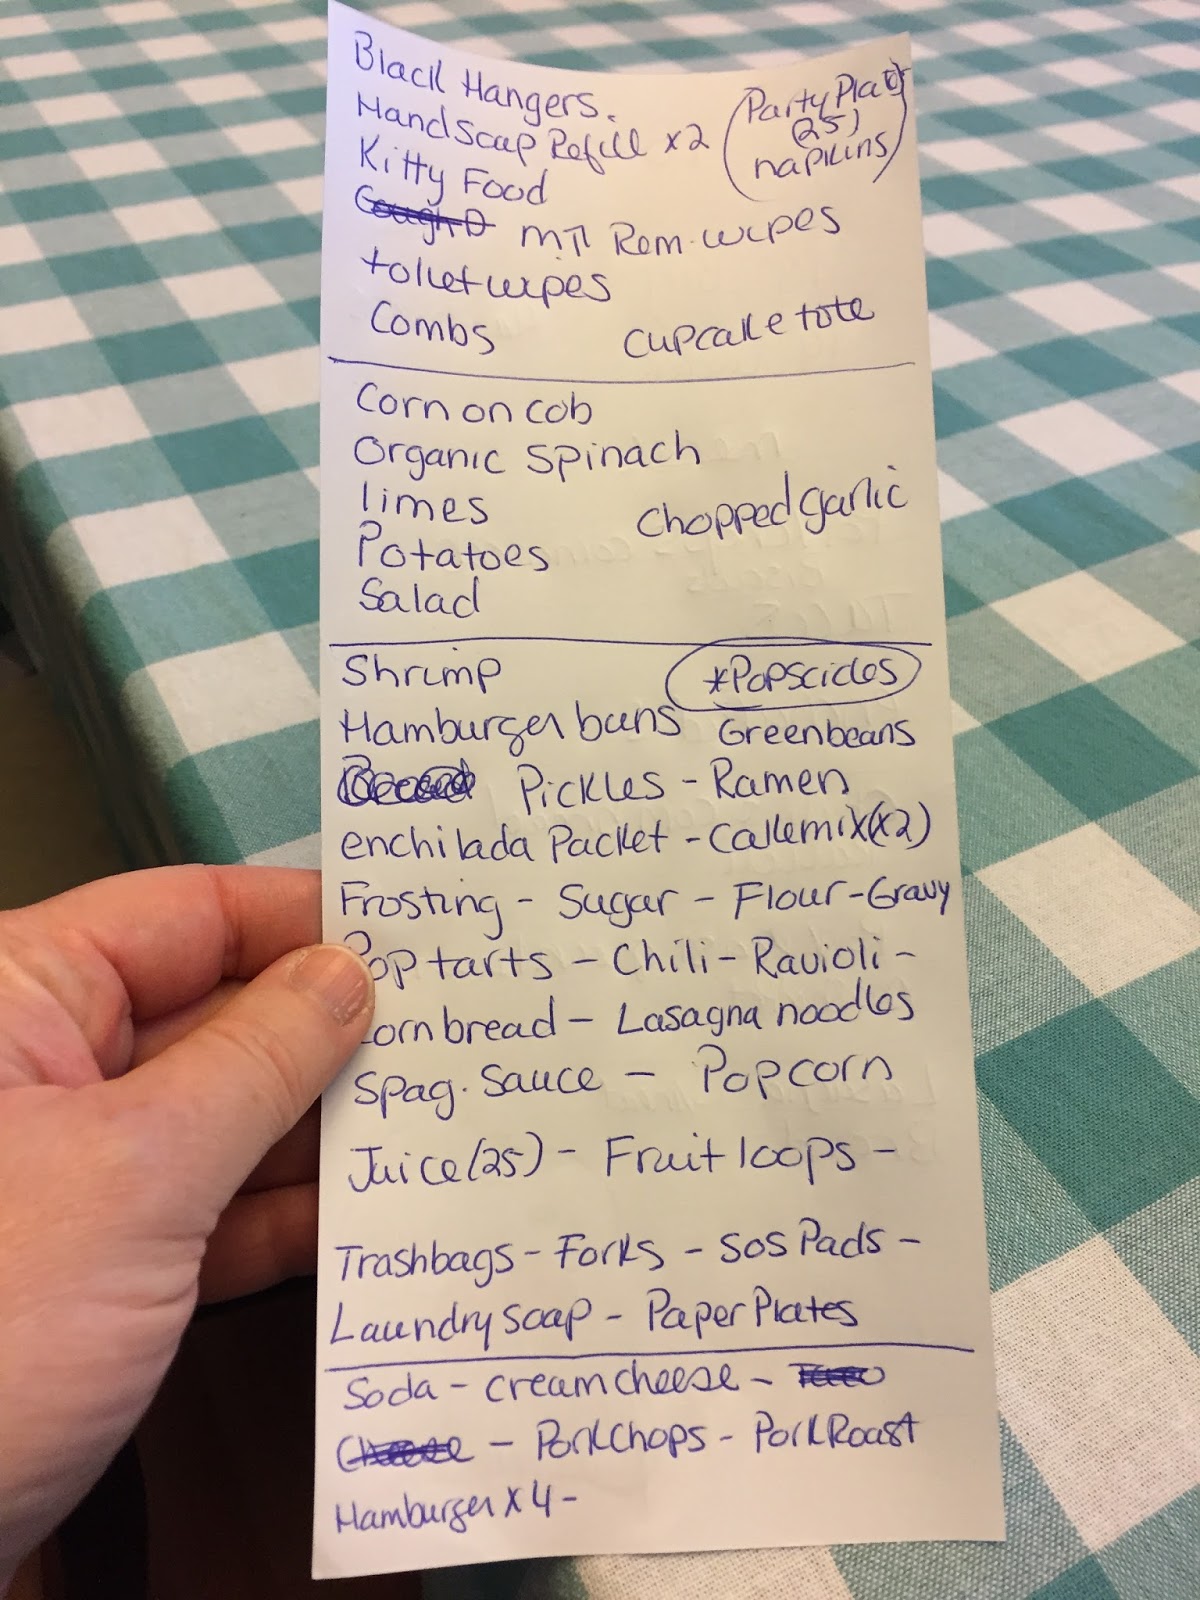 Black Hangers.
Hand Soap Refill x2
(Party Plates
(25)
napkins)
Kitty Food
Cough D
M/U Rem. wipes
toilet wipes
Combs
Cupcake tote
Corn on cob
Organic Spinach
limes
Chopped garlic
Potatoes
Salad
Shrimp
*Popscicles
Hamburger buns
Greenbeans
Pickles - Ramen
enchilada Packet - Cakemix (x2)
Frosting - Sugar - Flour - Gravy
Pop tarts - Chili - Ravioli -
Cornbread - Lasagna noodles
Spag. Sauce - Popcorn
Juice (25) - Fruit loops -
Trashbags - Forks - SOS Pads -
Laundry soap - Paper Plates
Soda - creamcheese - Taco
Cheese - PorkChops - Pork Roast
Hamburger x 4 -